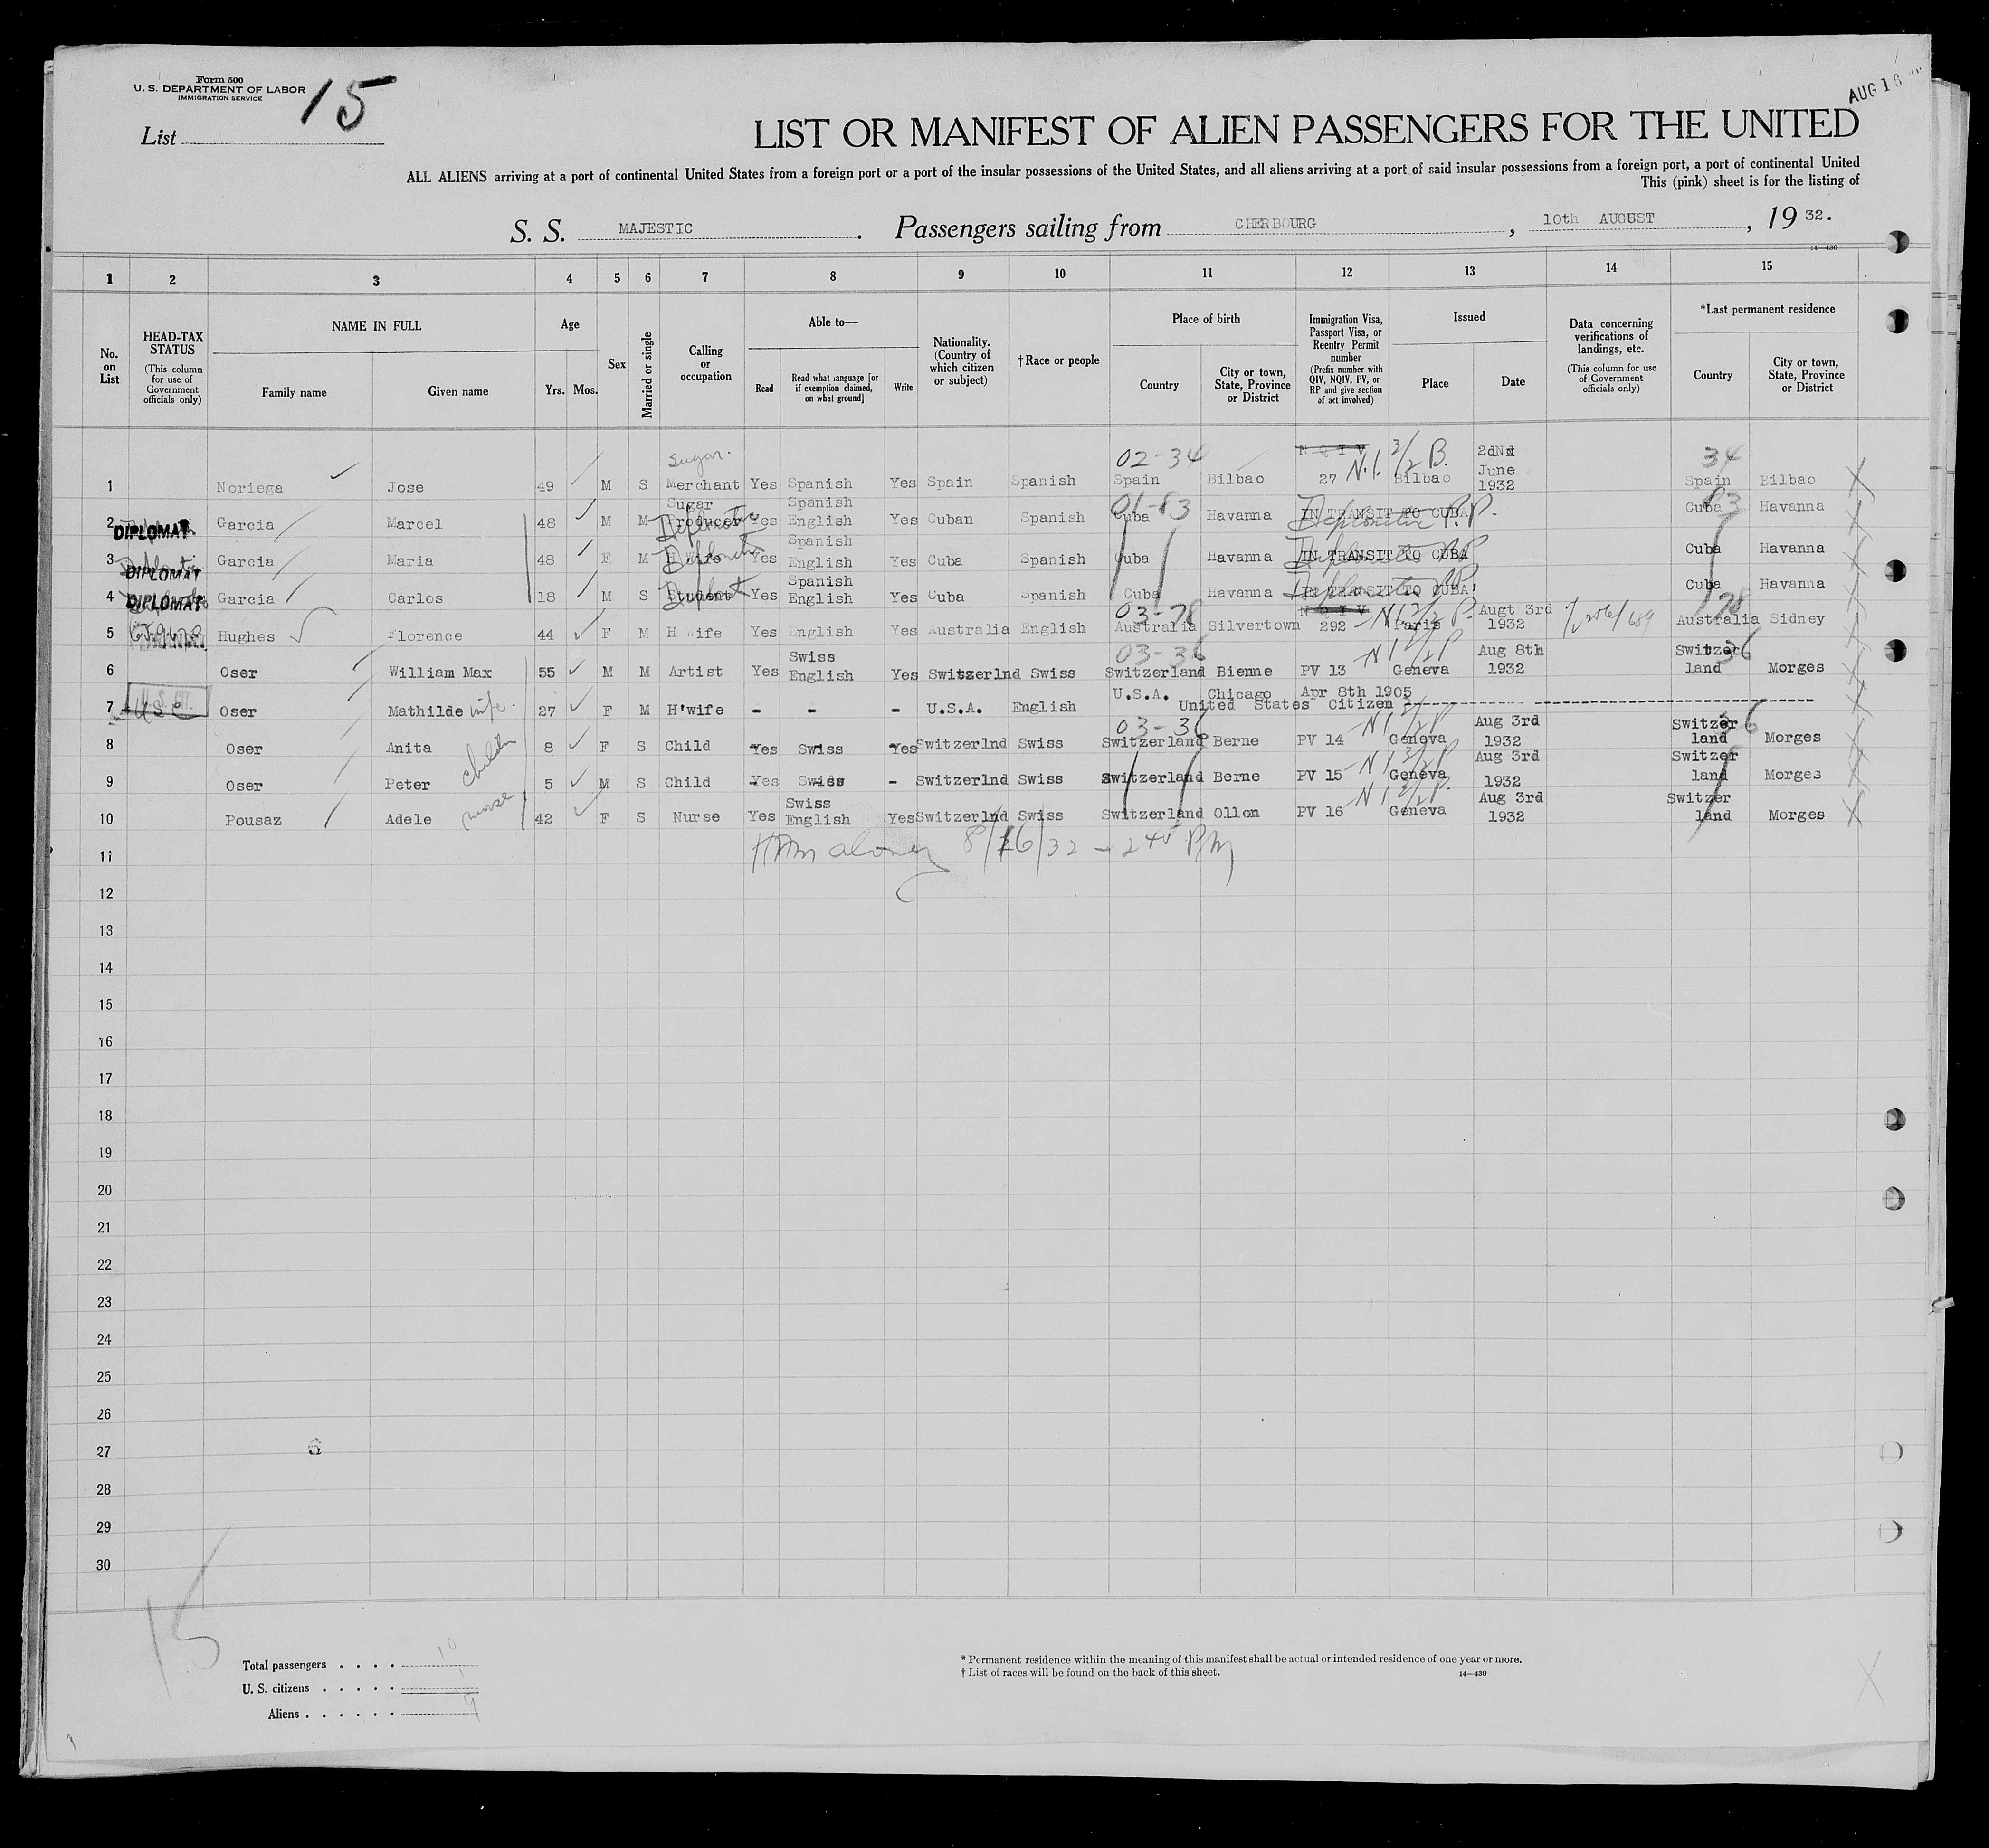 Form 500
U. S. DEPARTMENT OF LABOR
IMMIGRATION SERVICE
15
List
AUG 16
LIST OR MANIFEST OF ALIEN PASSENGERS FOR THE UNITED
ALL ALIENS arriving at a port of continental United States from a foreign port or a port of the insular possessions of the United States, and all aliens arriving at a port of said insular possessions from a foreign port, a port of continental United
This (pink) sheet is for the listing of
S. S. MAJESTIC. Passengers sailing from CHERBOURG, 10th AUGUST, 19 32.
14—430
1 2 3 4 5 6 7 8 9 10 11 12 13 14 15
No. on List
HEAD-TAX STATUS (This column for use of Government officials only)
NAME IN FULL
Family name Given name
Age
Yrs. Mos.
Sex
Married or single
Calling or occupation
Able to—
Read Read what language [or if exemption claimed, on what ground] Write
Nationality. (Country of which citizen or subject)
†Race or people
Place of birth
Country City or town, State, Province or District
Immigration Visa, Passport Visa, or Reentry Permit number (Prefix number with QIV, NQIV, PV, or RP and give section of act involved)
Issued
Place Date
Data concerning verifications of landings, etc. (This column for use of Government officials only)
*Last permanent residence
Country City or town, State, Province or District
Sugar. 02-34 N Q I V 3/2 B. 2dNd 34
1 Noriega Jose 49 M S Merchant Yes Spanish Yes Spain Spanish Spain Bilbao 27 N.I. Bilbao June 1932 Spain Bilbao
2 DIPLOMAT Garcia Marcel 48 M M Sugar Producer Diplomatic Yes Spanish English Yes Cuban Spanish 01-83 Cuba Havanna IN TRANSIT TO CUBA Diplomatic P.P. 83 Cuba Havanna
3 DIPLOMAT Garcia Maria 48 F M H Wife Yes Spanish English Yes Cuba Spanish Cuba Havanna IN TRANSIT TO CUBA Cuba Havanna
4 DIPLOMAT Garcia Carlos 18 M S Student Yes Spanish English Yes Cuba Spanish Cuba Havanna IN TRANSIT TO CUBA Cuba Havanna
5 Hughes Florence 44 F M H Wife Yes English Yes Australia English 03-78 Australia Silvertown N Q I V 292 Paris Augt 3rd 1932 78 Australia Sidney
6 Oser William Max 55 M M Artist Yes Swiss English Yes Switzerlnd Swiss 03-36 Switzerland Bienne PV 13 Geneva Aug 8th 1932 36 Switzer land Morges
7 U.S. CIT. USC Oser Mathilde wife. 27 F M H'wife - - - U.S.A. English U.S.A. Chicago Apr 8th 1905 United States Citizen
8 Oser Anita 8 F S Child Yes Swiss Yes Switzerlnd Swiss 03-36 Switzerland Berne PV 14 Geneva Aug 3rd 1932 36 Switzer land Morges
children
9 Oser Peter 5 M S Child Yes Swiss - Switzerlnd Swiss Switzerland Berne PV 15 Geneva Aug 3rd 1932 Switzer land Morges
10 Pousaz Adele nurse 42 F S Nurse Yes Swiss English Yes Switzerlnd Swiss Switzerland Ollon PV 16 Geneva Aug 3rd 1932 Switzer land Morges
11 8/16/32 - 2 45 PM
12
13
14
15
16
17
18
19
20
21
22
23
24
25
26
27
28
29
30
15
Total passengers . . . . 10
U. S. citizens . . . . . 1
Aliens . . . . . . 9
* Permanent residence within the meaning of this manifest shall be actual or intended residence of one year or more.
† List of races will be found on the back of this sheet.
14—430